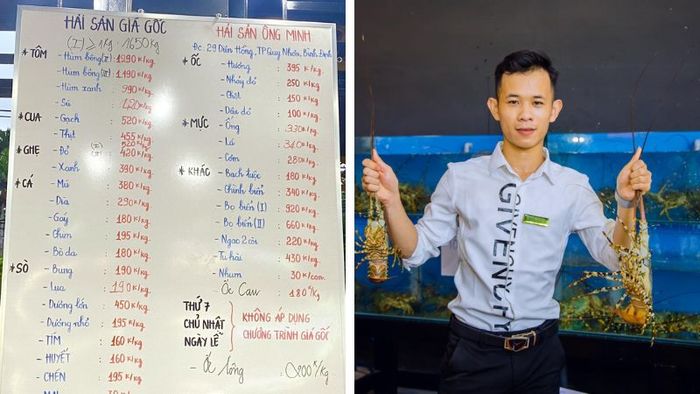 HẢI SẢN GIÁ GỐC
(I) ≥ 1kg 1650kg
* TÔM - Hùm bông(I): 1290 K/kg
- Hùm bông(II): 1190 K/kg
- Hùm xanh : 990 K/kg
- Sú : K/kg
* CUA - Gạch : 520 K/kg
- Thịt : 455 K/kg
* GHẸ - Đỏ (I) 520 K/kg
(II) 420 K/kg
- Xanh : 390 K/kg
* CÁ - Mú : 380 K/kg
- Dìa : 290 K/kg
- Gáy : 180 K/kg
- Chim : 195 K/kg
- Bò da : 180 K/kg
* SÒ - Bung : 190 K/kg
- Lụa : 190 K/kg
- Dương lớn : 450 K/kg
- Dương nhỏ : 195 K/kg
- TÍM : 160 K/kg
- HUYẾT : 160 K/kg
- CHÉN : 195 K/kg
HẢI SẢN ÔNG MINH
Đc: 29 Diên Hồng, TP Quy Nhơn, Bình Định
* ỐC - Hương : 395 K/kg
- Nhảy đỏ : 250 K/kg
- Chít : 150 K/kg
- Dừa đỏ : 100 K/kg
* MỰC - Ống : 330 K/kg
- Lá : 360 K/kg
- Cơm : 280 K/kg
* KHÁC - Bạch tuộc : 180 K/kg
- Chình biển : 340 K/kg
- Bò biển (I) : 920 K/kg
- Bò biển (II) : 660 K/kg
- Ngao 2 cồi : 220 K/kg
- Tu hài : 430 K/kg
- Nhum : 30 K/con
- Ốc Cau : 180 K/kg
THỨ 7
CHỦ NHẬT
NGÀY LỄ
KHÔNG ÁP DỤNG
CHƯƠNG TRÌNH GIÁ GỐC
- Ốc lông : K/kg
GIVENCHY
GIVENCHY